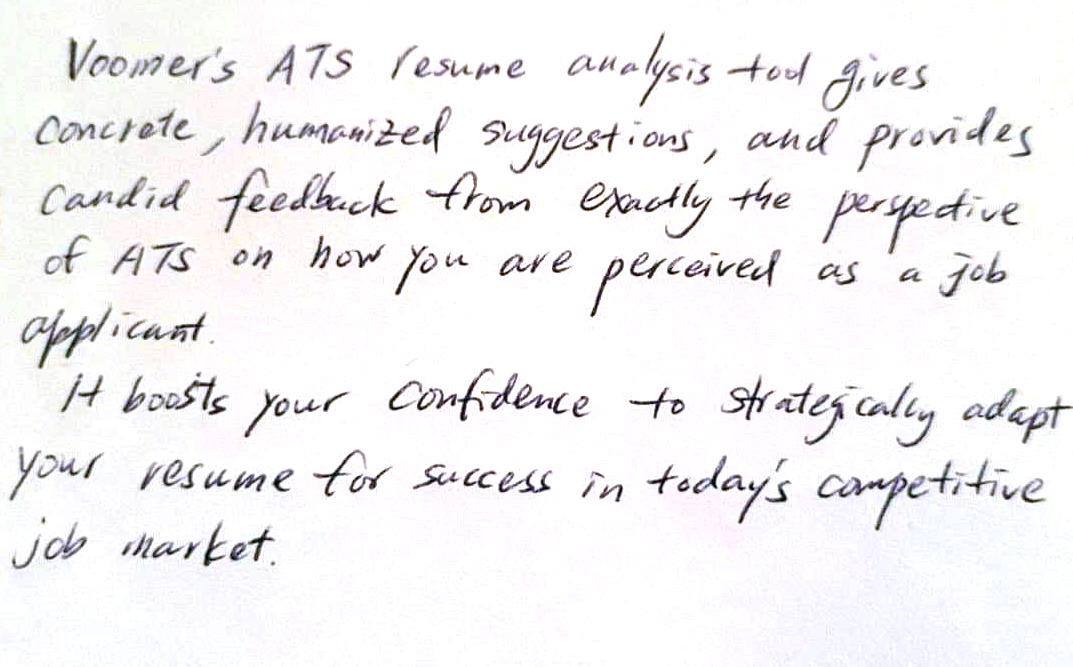 Voomer's ATS resume analysis tool gives
concrete, humanized suggestions, and provides
candid feedback from exactly the perspective
of ATS on how you are perceived as a job
applicant.
It boosts your confidence to strategically adapt
your resume for success in today's competitive
job market.